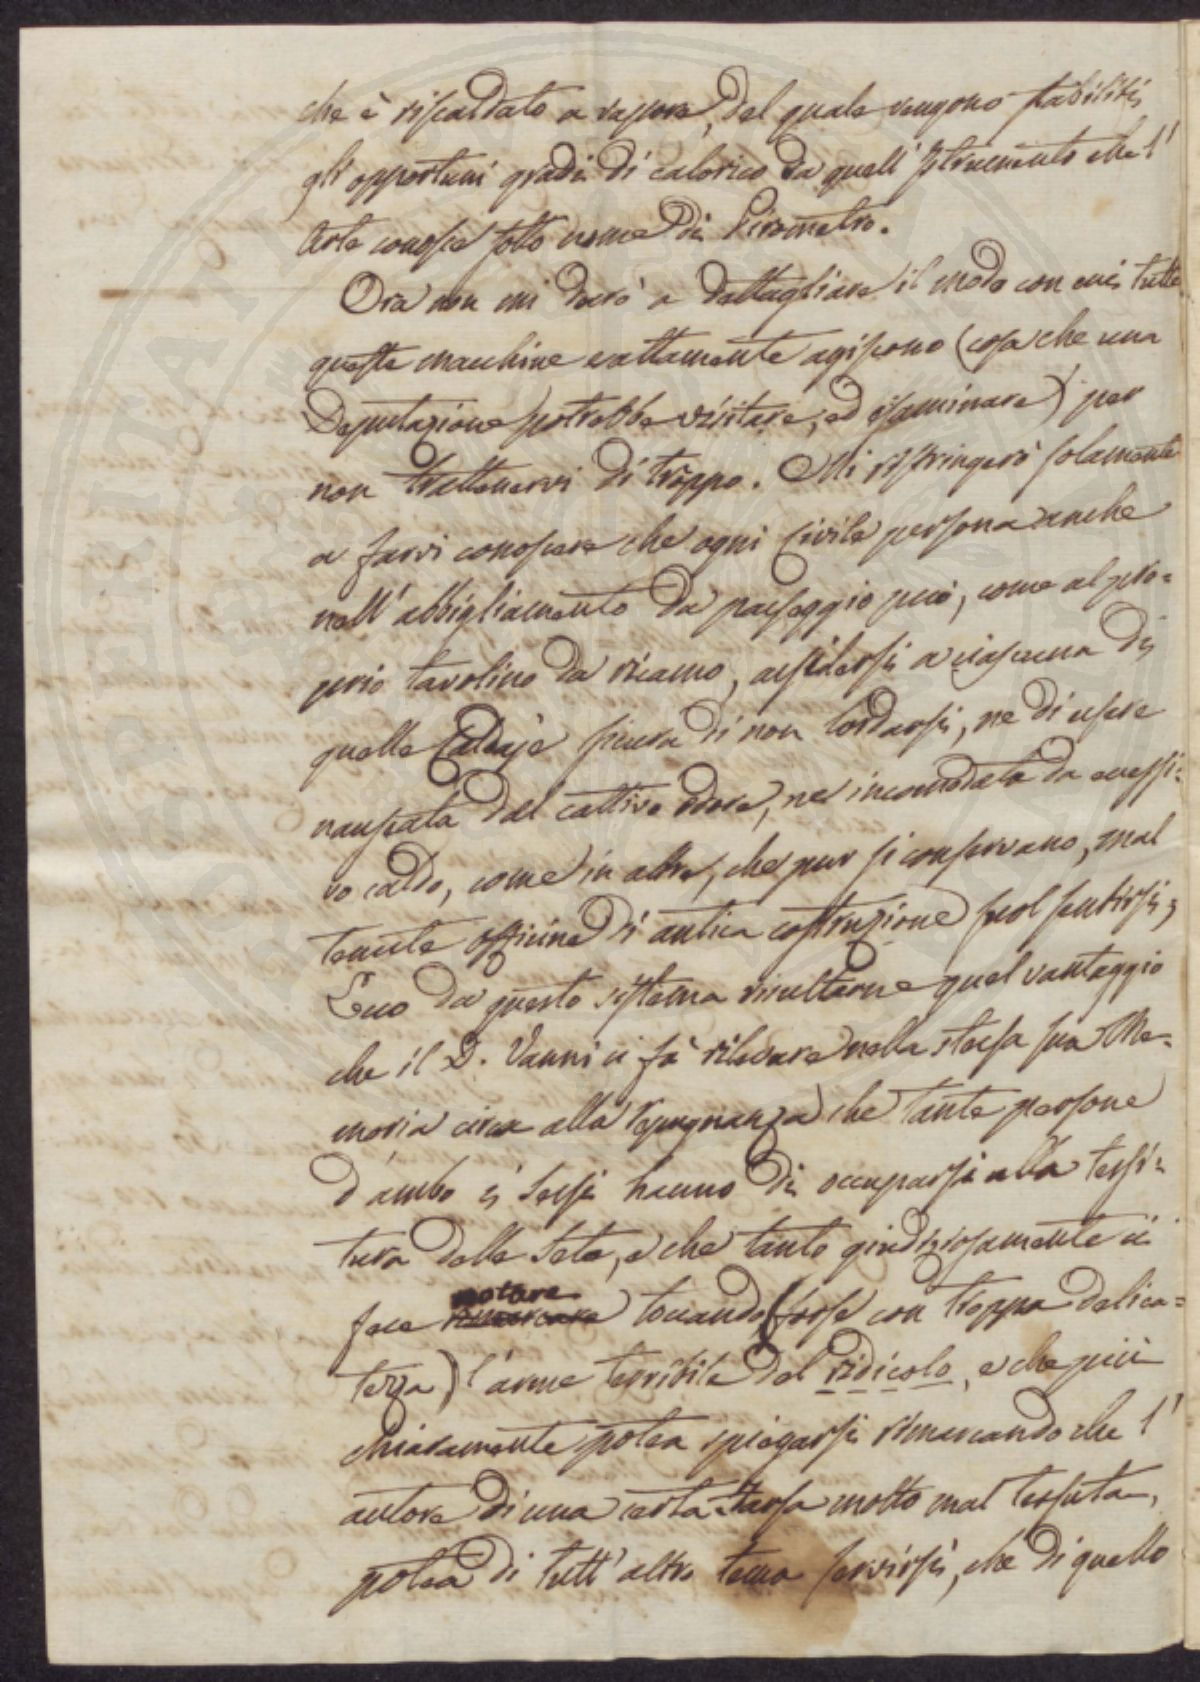 che è riscaldato a vapore, del quale vengono stabiliti
gli opportuni gradi di calorico da quell' Istrumento che l'
Arte conosce sotto nome di Pirometro.
Ora non mi darò a dettagliare il modo con cui tutte
queste macchine esattamente agiscono (cosa che una
Deputazione potrebbe visitare, ed esaminare) per
non trattenervi di troppo. Mi ristringerò solamente
a farvi conoscere che ogni Civile persona anche
nell' abbigliamento da passeggio può, come al pro=
prio tavolino da ricamo, assidersi a ciascuna di
quelle Caldaje sicura di non lordarsi, ne di essere
nauseata dal cattivo odore, ne incomodata da eccessi=
vo caldo, come in altre, che pur si conservano, mal
tenute officine di antica costruzione suol sentirsi,
Ecco da questo sistema risultarne quel vantaggio
che il D. Vanni ci fà rilevare nella stessa sua Me=
moria circa alla repugnanza che tante persone
d'ambo i Sessi hanno di occuparsi alla tessi=
tura delle Sete, e che tanto giudiziosamente ci
notare
fece rimarcare toccando (forse con troppa delica=
tezza) l'arme terribile del ridicolo, e che più
chiaramente potea spiegarsi rimarcando che l'
autore di una certa farsa molto mal tessuta,
potea di tutt' altro tema servirsi, che di quello
OSPERITATI